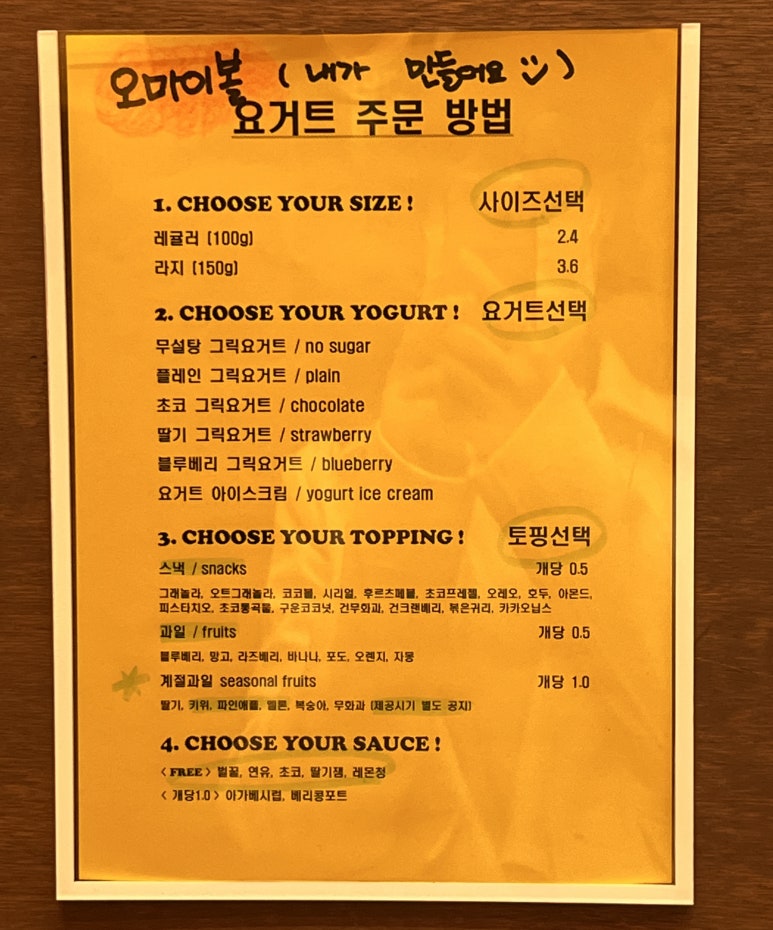 오마이볼 ( 내가 만들어요 )
요거트 주문 방법
1. CHOOSE YOUR SIZE ! 사이즈선택
레귤러 (100g) 2.4
라지 (150g) 3.6
2. CHOOSE YOUR YOGURT ! 요거트선택
무설탕 그릭요거트 / no sugar
플레인 그릭요거트 / plain
초코 그릭요거트 / chocolate
딸기 그릭요거트 / strawberry
블루베리 그릭요거트 / blueberry
요거트 아이스크림 / yogurt ice cream
3. CHOOSE YOUR TOPPING ! 토핑선택
스낵 / snacks 개당 0.5
그래놀라, 오트그래놀라, 코코볼, 시리얼, 후르츠페블, 초코프레젤, 오레오, 호두, 아몬드,
피스타치오, 초코통곡물, 구운코코넛, 건무화과, 건크랜베리, 볶은귀리, 카카오닙스
과일 / fruits 개당 0.5
블루베리, 망고, 라즈베리, 바나나, 포도, 오렌지, 자몽
계절과일 seasonal fruits 개당 1.0
딸기, 키위, 파인애플, 멜론, 복숭아, 무화과 (제공시기 별도 공지)
4. CHOOSE YOUR SAUCE !
< FREE > 벌꿀, 연유, 초코, 딸기잼, 레몬청
< 개당1.0 > 아가베시럽, 베리콩포트